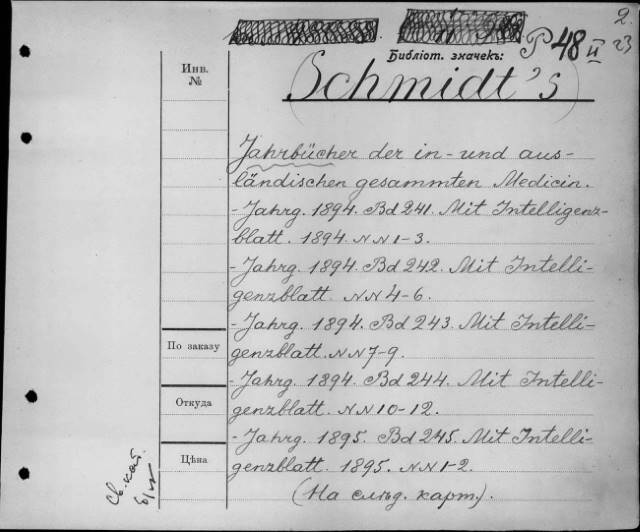 2.
P 48 II 23
Библіот. значекъ:
Инв.
№
(Schmidt's)
Jahrbücher der in- und aus-
ländischen gesammten Medicin.
- Jahrg. 1894. Bd 241. Mit Intelligenz-
blatt. 1894. NN 1-3.
- Jahrg. 1894. Bd 242. Mit Intelli-
genzblatt. NN 4-6.
- Jahrg. 1894. Bd 243. Mit Intelli-
genzblatt. NN 7-9.
По заказу
- Jahrg. 1894. Bd 244. Mit Intelli-
genzblatt. NN 10-12.
Откуда
- Jahrg. 1895. Bd 245. Mit Intelli-
genzblatt. 1895. NN 1-2.
Цѣна
(На слѣд. карт.).
Св. кат.